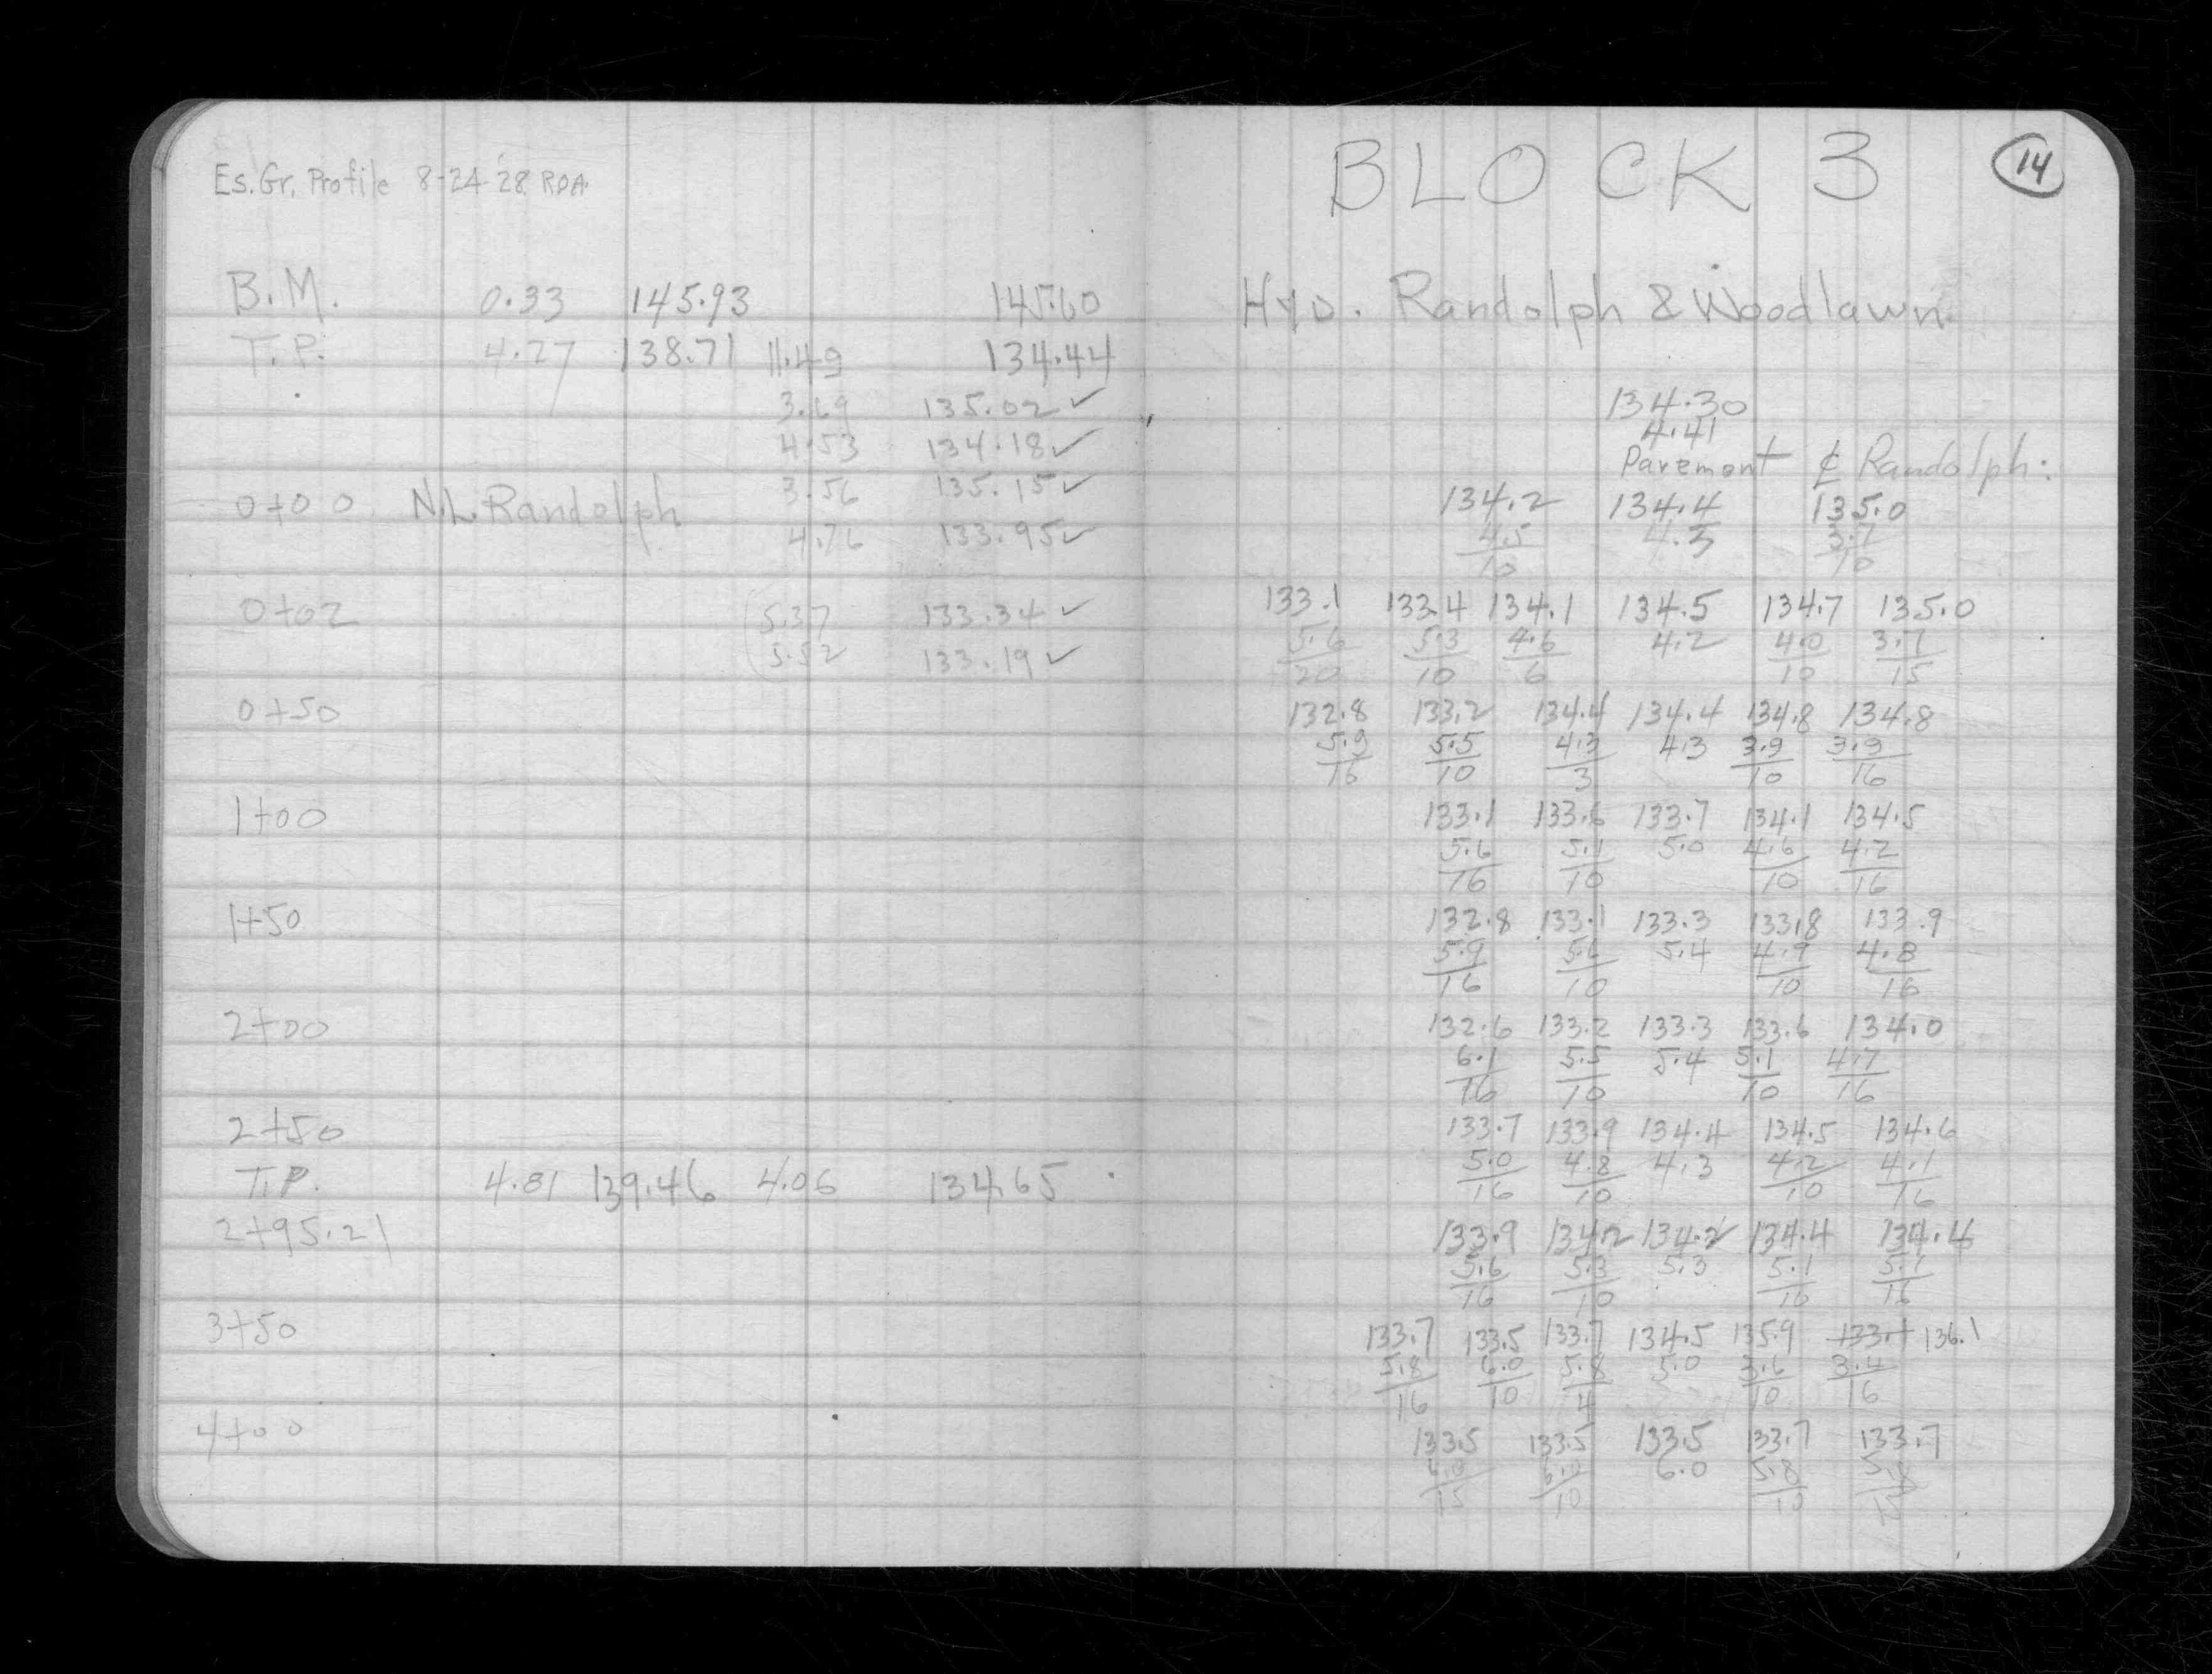 Es. Gr. Profile 8-24-28 RDA.
B.M. 0.33 145.93 145.60
T.P. 4.27 138.71 11.49 134.44
3.69 135.02 ✓
4.53 134.18 ✓
0+00 N.L. Randolph 3.56 135.15 ✓
4.76 133.95 ✓
0+02 5.37 133.34 ✓
5.52 133.19 ✓
0+50
1+00
1+50
2+00
2+50
T.P. 4.81 139.46 4.06 134.65
2+95.21
3+50
4+00
BLOCK 3 14
Hyd. Randolph & Woodlawn
134.30
4.41
Pavement ℄ Randolph:
134.2 134.4 135.0
4.5 4.3 3.7
10 10
133.1 133.4 134.1 134.5 134.7 135.0
5.6 5.3 4.6 4.2 4.0 3.7
20 10 6 10 15
132.8 133.2 134.4 134.4 134.8 134.8
5.9 5.5 4.3 4.3 3.9 3.9
16 10 3 10 16
133.1 133.6 133.7 134.1 134.5
5.6 5.1 5.0 4.6 4.2
16 10 10 16
132.8 133.1 133.3 133.8 133.9
5.9 5.6 5.4 4.9 4.8
16 10 10 16
132.6 133.2 133.3 133.6 134.0
6.1 5.5 5.4 5.1 4.7
16 10 10 16
133.7 133.9 134.4 134.5 134.6
5.0 4.8 4.3 4.2 4.1
16 10 10 16
133.9 134.2 134.2 134.4 134.4
5.6 5.3 5.3 5.1 5.1
16 10 10 16
133.7 133.5 133.7 134.5 135.9 133.1 136.1
5.8 6.0 5.8 5.0 3.6 3.4
16 10 4 10 16
133.5 133.5 133.5 133.7 133.7
6.0 6.0 6.0 5.8 5.8
15 10 10